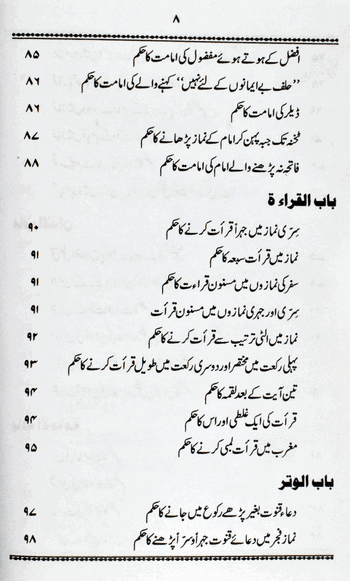 ۸
افضل کے ہوتے ہوئے مفضول کی امامت کا حکم ۸۵
”حلف بے ایمانوں کے لئے نہیں“ کہنے والے کی امامت کا حکم ۸۶
ڈیلر کی امامت کا حکم ۸۶
ٹخنہ تک جبہ پہن کر امام کے نماز پڑھانے کا حکم ۸۷
فاتحہ نہ پڑھنے والے امام کی امامت کا حکم ۸۸
باب القراءۃ
سرّی نماز میں جہراً قرأت کرنے کا حکم ۹۰
نماز میں قرأت سبعہ کا حکم ۹۱
سفر کی نمازوں میں مسنون قراءت کا حکم ۹۱
سرّی اور جہری نمازوں میں مسنون قرأت ۹۱
نماز میں الٹی ترتیب سے قرأت کرنے کا حکم ۹۲
پہلی رکعت میں مختصر اور دوسری رکعت میں طویل قرأت کرنے کا حکم ۹۳
تین آیت کے بعد لقمہ کا حکم ۹۴
قرأت کی ایک غلطی اور اس کا حکم ۹۴
مغرب میں قرأت لمبی کرنے کا حکم ۹۵
باب الوتر
دعاء قنوت بغیر پڑھے رکوع میں جانے کا حکم ۹۷
نماز فجر میں دعائے قنوت جہراً و سراً پڑھنے کا حکم ۹۸